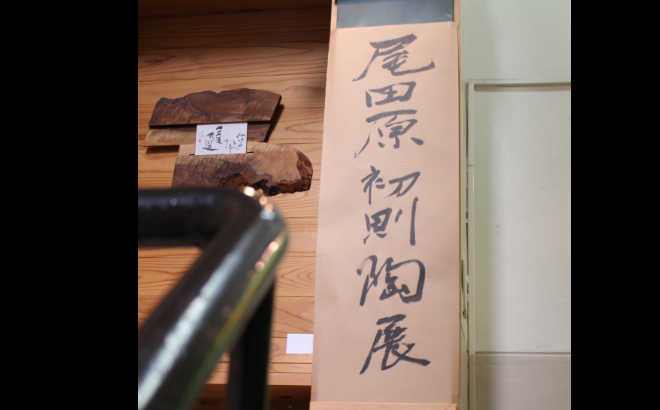 尾田原初則陶展